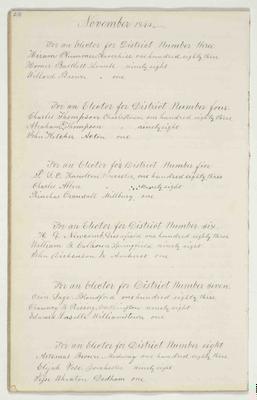 November 1844
For an Elector for District Number three
Hiram Plummer Haverhill one hundred eighty three
Homer Bartlett Lowell " ninety eight
Willard Brown " one
For an Elector for District Number four
Charles Thompson Charlestown one hundred eighty three
Abraham Thompson " ninety eight
John Fletcher Acton one
For an Elector for District Number five
Hamilton Worcester one hundred eighty three
Charles Allen " ninety eight
Crandall Millbury one
For an Elector for District Number six
H. G. Newcomb Greenfield one hundred eighty three
William B Calhoun Springfield ninety eight
John Dickenson Jr Amherst one
For an Elector for District Number seven
Sage Blandford one hundred eighty three
ninety eight
Edward Lasell Williamstown one
For an Elector for District Number eight
Artemas Brown Medway one hundred eighty three
Elijah Vose Dorchester ninety eight
Wheaton Dedham one